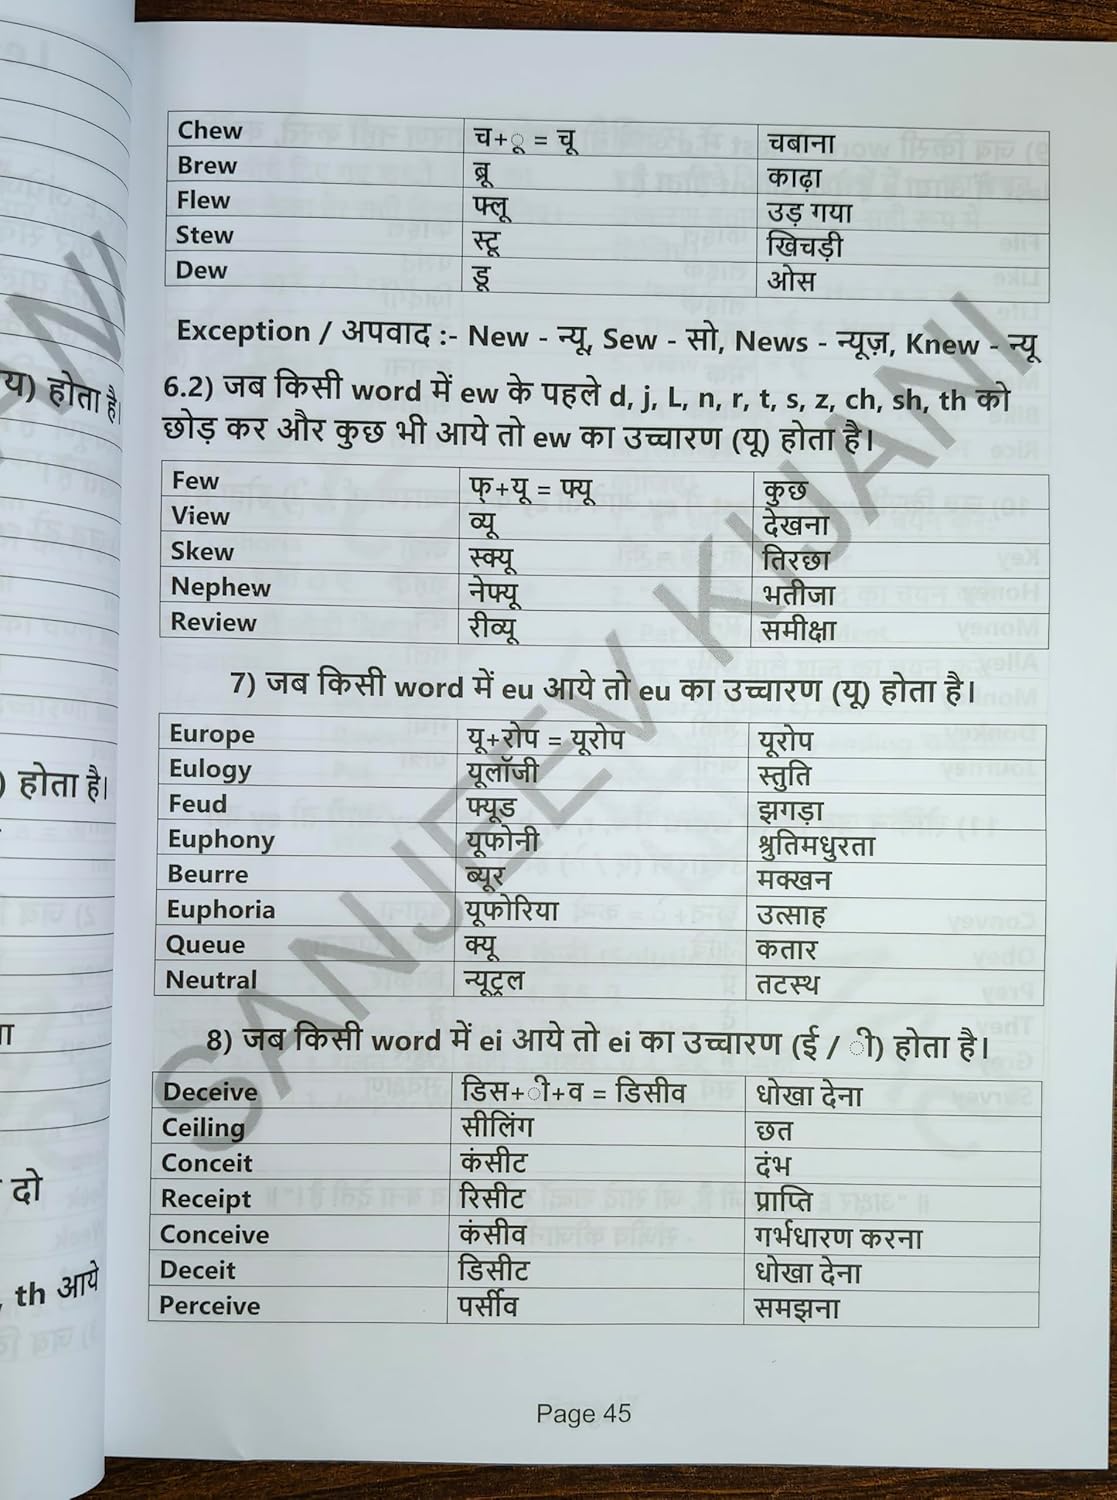 Chew च+ू = चू चबाना
Brew ब्रू काढ़ा
Flew फ्लू उड़ गया
Stew स्टू खिचड़ी
Dew डू ओस
Exception / अपवाद :- New - न्यू, Sew - सो, News - न्यूज़, Knew - न्यू
6.2) जब किसी word में ew के पहले d, j, L, n, r, t, s, z, ch, sh, th को
छोड़ कर और कुछ भी आये तो ew का उच्चारण (यू) होता है।
Few फ्+यू = फ्यू कुछ
View व्यू देखना
Skew स्क्यू तिरछा
Nephew नेफ्यू भतीजा
Review रीव्यू समीक्षा
7) जब किसी word में eu आये तो eu का उच्चारण (यू) होता है।
Europe यू+रोप = यूरोप यूरोप
Eulogy यूलॉजी स्तुति
Feud फ्यूड झगड़ा
Euphony यूफोनी श्रुतिमधुरता
Beurre ब्यूर मक्खन
Euphoria यूफोरिया उत्साह
Queue क्यू कतार
Neutral न्यूट्रल तटस्थ
8) जब किसी word में ei आये तो ei का उच्चारण (ई / ी) होता है।
Deceive डिस+ी+व = डिसीव धोखा देना
Ceiling सीलिंग छत
Conceit कंसीट दंभ
Receipt रिसीट प्राप्ति
Conceive कंसीव गर्भधारण करना
Deceit डिसीट धोखा देना
Perceive पर्सीव समझना
Page 45
SANJEEV KIJANI
य) होता है।
) होता है।
दो
, th आये